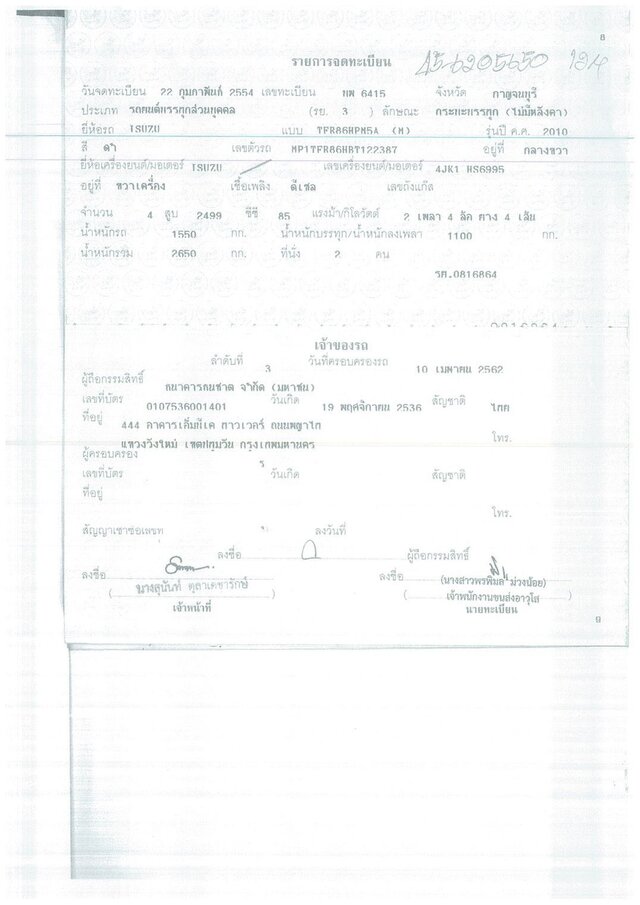 8
รายการจดทะเบียน
วันจดทะเบียน 22 กุมภาพันธ์ 2554 เลขทะเบียน บพ 6415 จังหวัด กาญจนบุรี
ประเภท รถยนต์บรรทุกส่วนบุคคล (รย. 3 ) ลักษณะ กระบะบรรทุก (ไม่มีหลังคา)
ยี่ห้อรถ ISUZU แบบ TFR86HPM5A (M) รุ่นปี ค.ศ. 2010
สี ดำ เลขตัวรถ MP1TFR86HBT122387 อยู่ที่ กลางขวา
ยี่ห้อเครื่องยนต์/มอเตอร์ ISUZU เลขเครื่องยนต์/มอเตอร์ 4JK1 HS6995
อยู่ที่ ขวาเครื่อง เชื้อเพลิง ดีเซล เลขถังแก๊ส
จำนวน 4 สูบ 2499 ซีซี 85 แรงม้า/กิโลวัตต์ 2 เพลา 4 ล้อ ยาง 4 เส้น
น้ำหนักรถ 1550 กก. น้ำหนักบรรทุก/น้ำหนักลงเพลา 1100 กก.
น้ำหนักรวม 2650 กก. ที่นั่ง 2 คน
รศ.0816864
เจ้าของรถ
ลำดับที่ 3 วันที่ครอบครองรถ 10 เมษายน 2562
ผู้ถือกรรมสิทธิ์ ธนาคารธนชาต จำกัด (มหาชน)
เลขที่บัตร 0107536001401 วันเกิด 19 พฤศจิกายน 2536 สัญชาติ ไทย
ที่อยู่ 444 อาคารเอ็มบีเค ทาวเวอร์ ถนนพญาไท
แขวงวังใหม่ เขตปทุมวัน กรุงเทพมหานคร โทร.
ผู้ครอบครอง
เลขที่บัตร วันเกิด สัญชาติ
ที่อยู่
โทร.
สัญญาเช่าซื้อเลขที่ ลงวันที่
ลงชื่อ ผู้ถือกรรมสิทธิ์
ลงชื่อ ลงชื่อ
นางสุนันท์ ตุลาเดชารักษ์ (นางสาวพรพิมล ม่วงน้อย)
เจ้าหน้าที่ เจ้าพนักงานขนส่งอาวุโส
นายทะเบียน
9